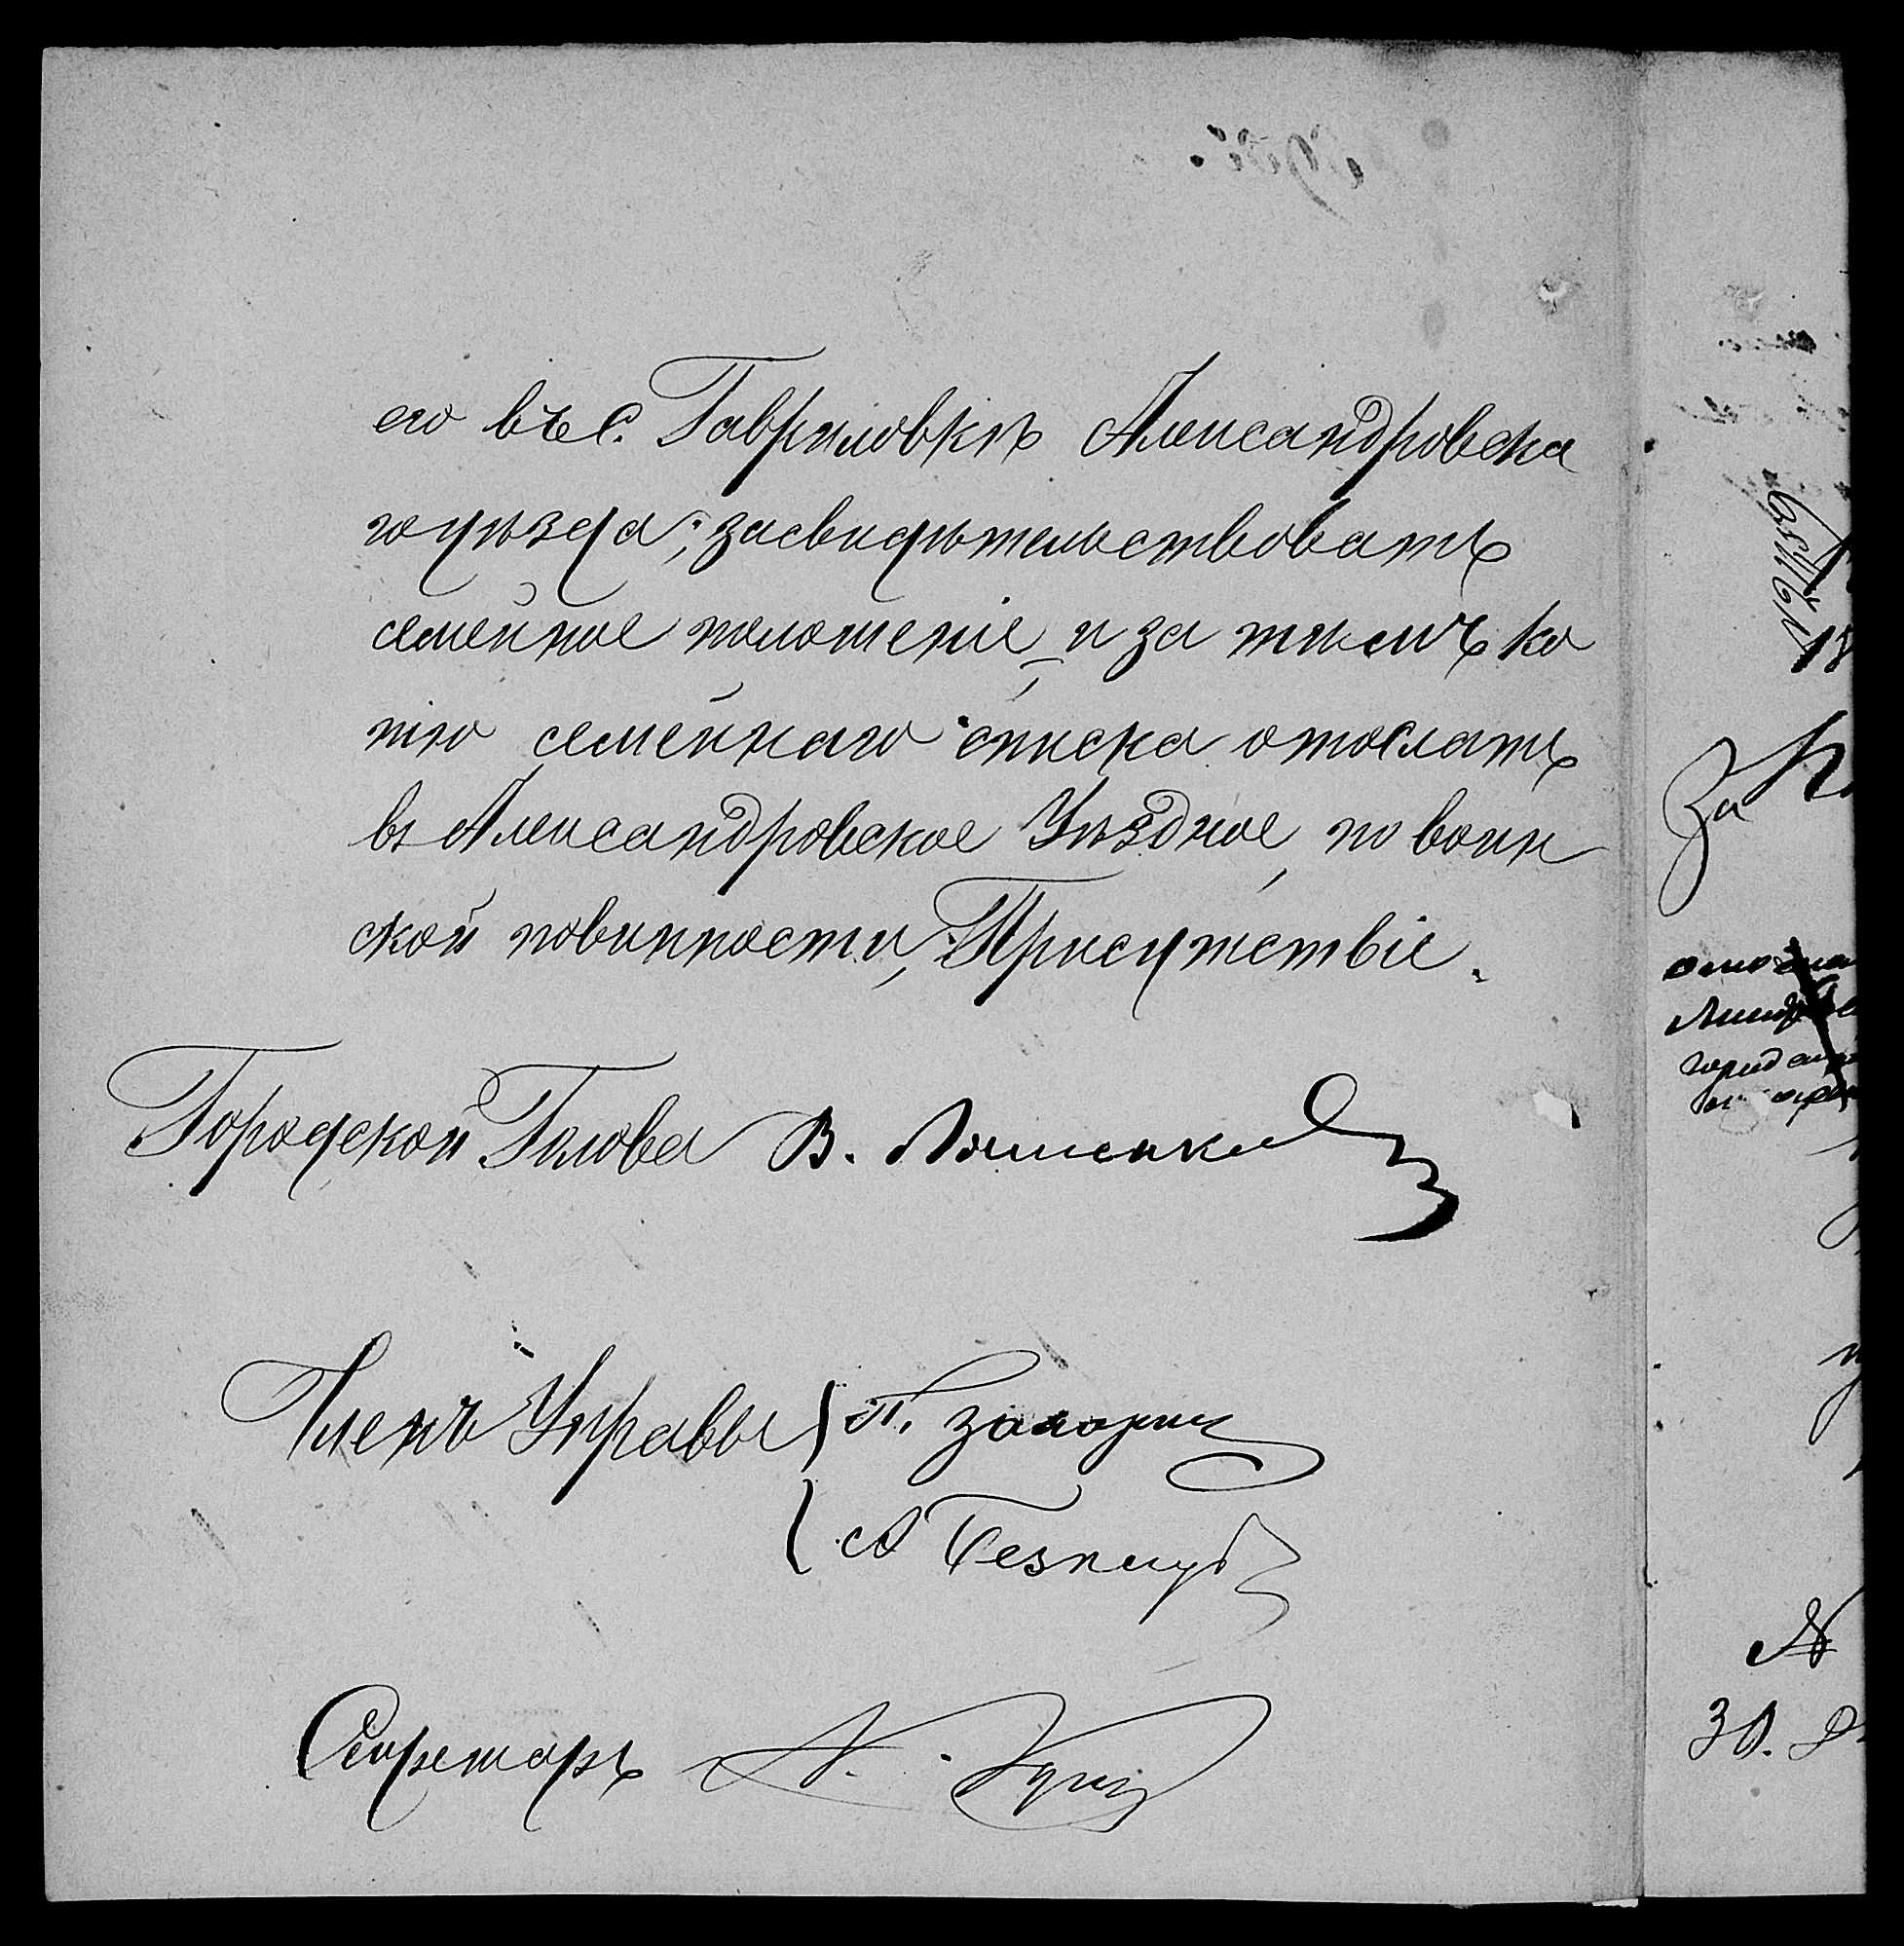 его въ с. Гавриловкѣ Александровска
го уѣзда; засвидѣтельствовать
семейное положеніе и за тѣмъ ко
пію семейнаго списка отослать
въ Александровское Уѣздное, по воин
ской повинности, Присутствіе.
Городской Голова В.
Членъ Управы П.
А
Секретарь
За
30.